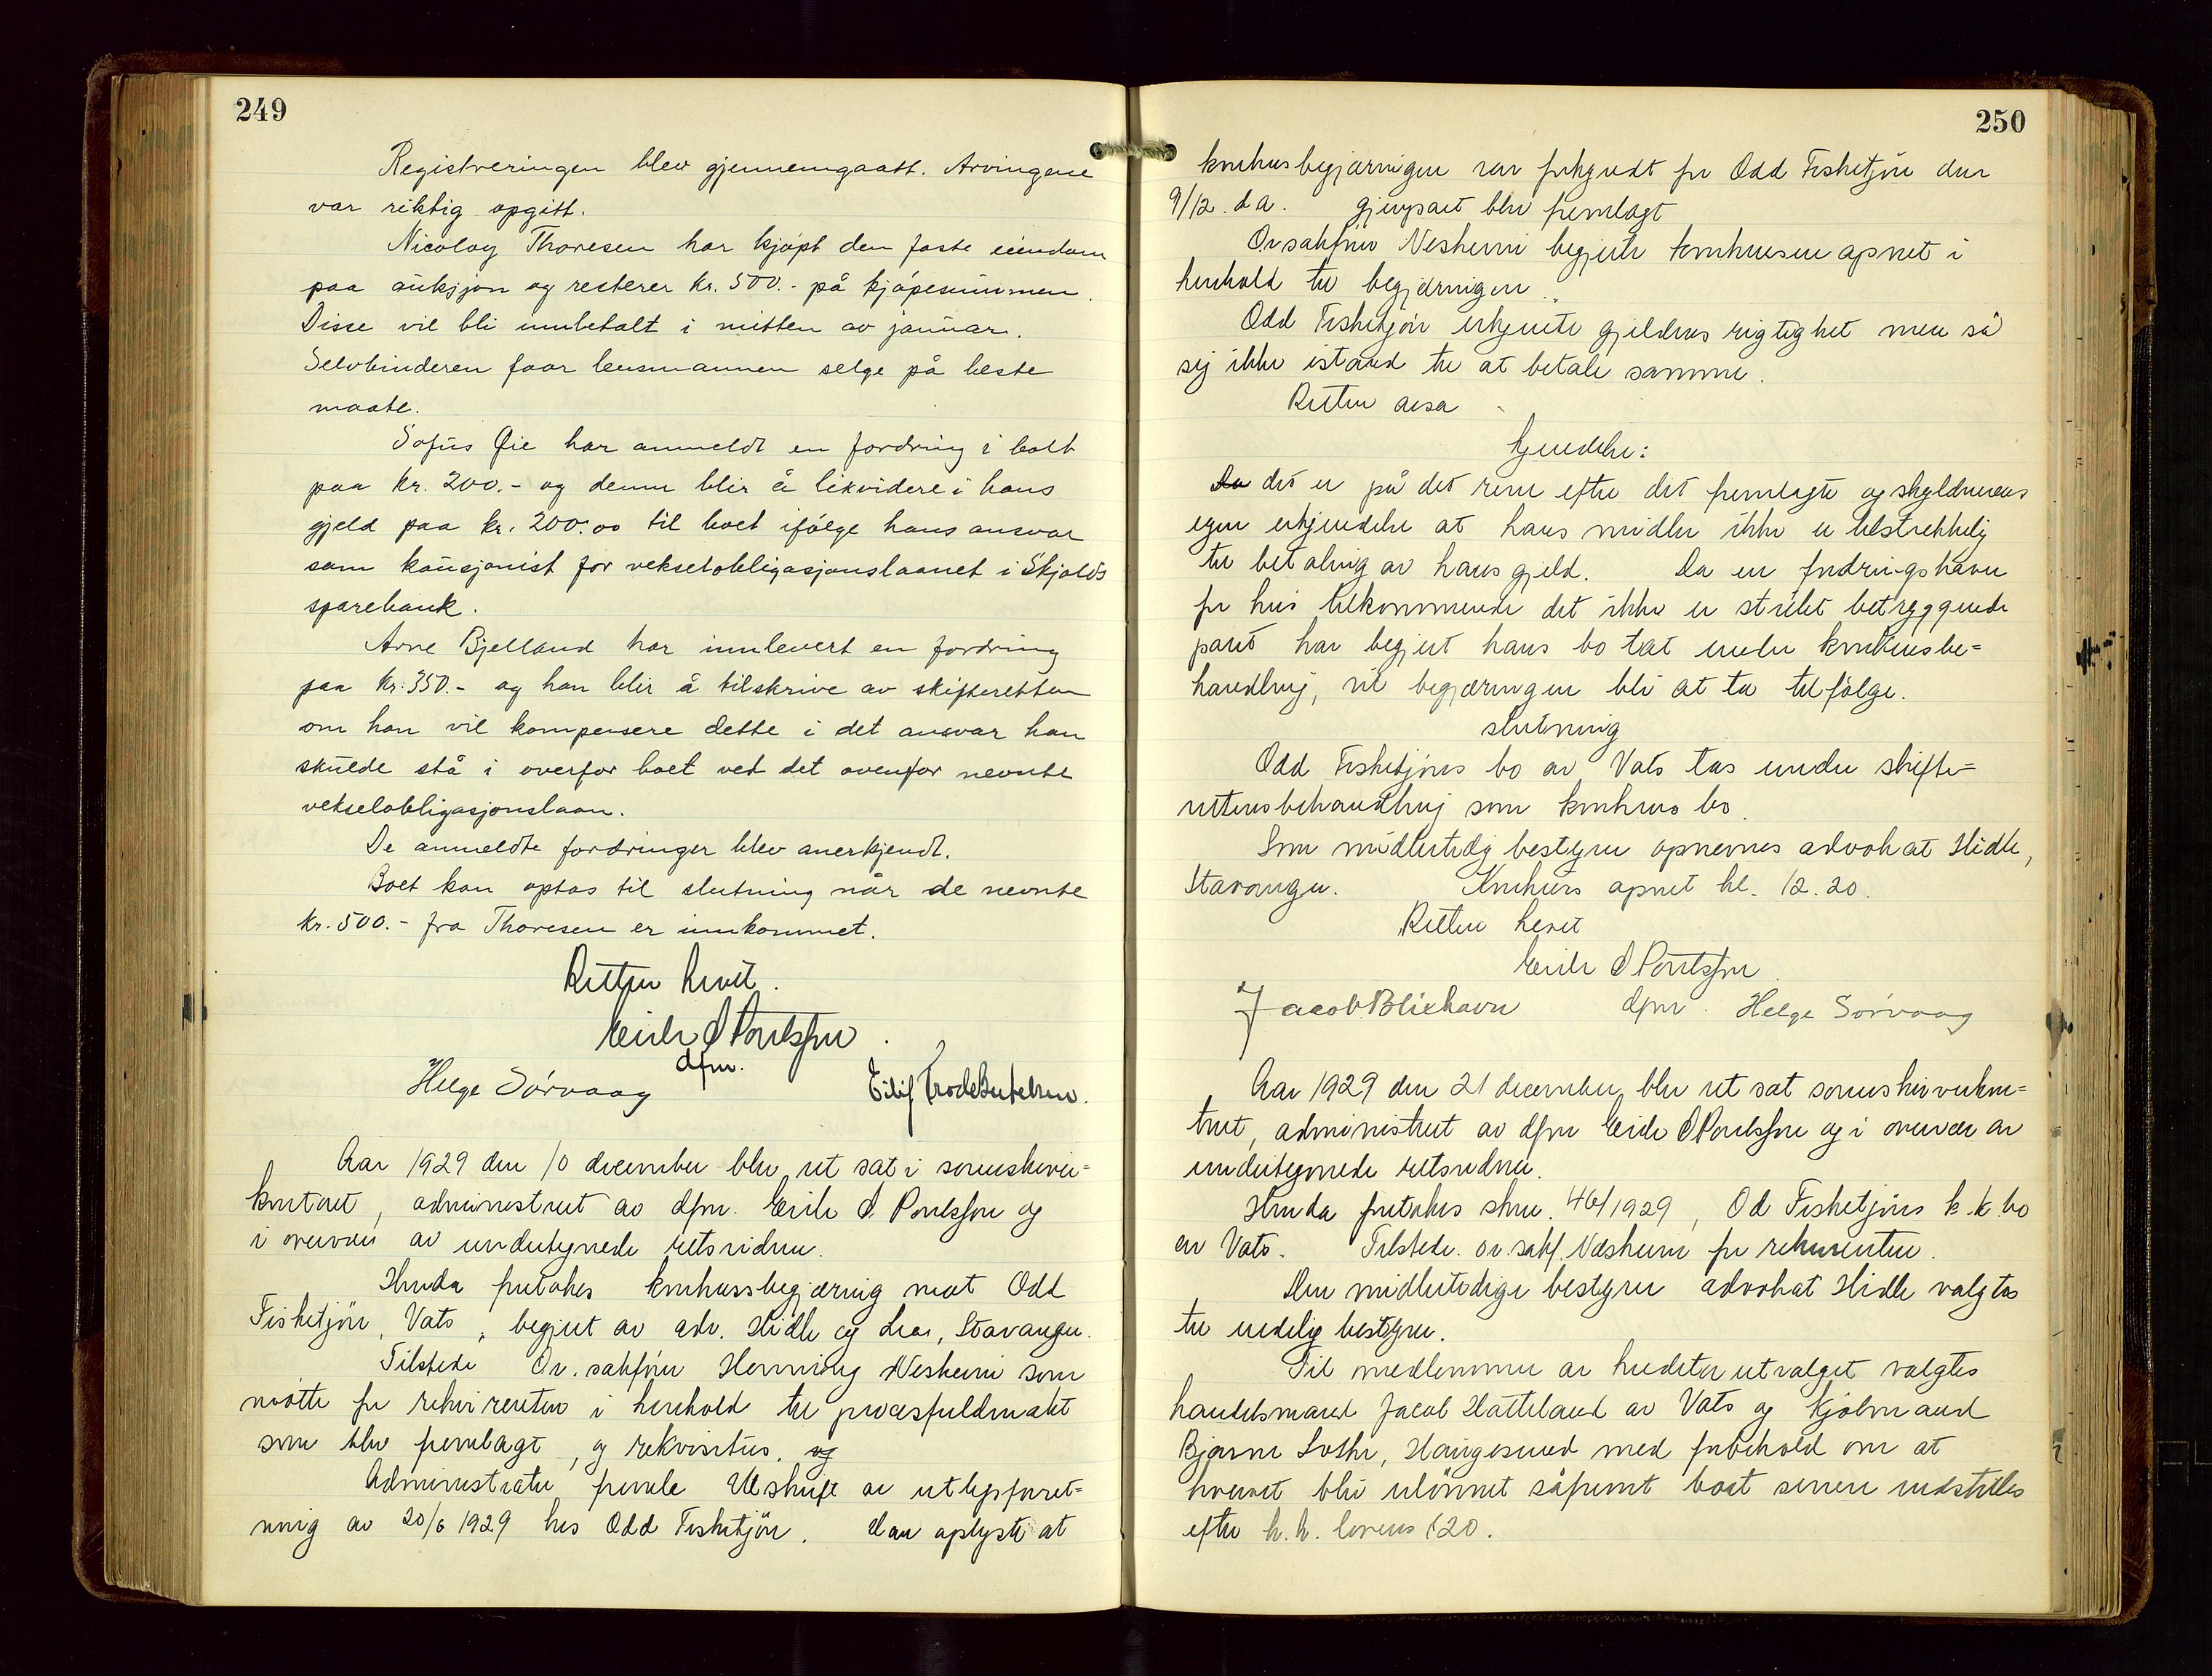 249
Registreringen blev gjennemgaatt. Arvingene
var riktig opgitt.
Nicolay Thoresen har kjøpt den faste eiendom
paa auksjon og resterer kr. 500.- på kjøpesummen.
Disse vil bli innbetalt i mitten av januar.
Selvbinderen faar lensmannen selge på beste
maate.
Sofus Øie har anmeldt en fordring i boet
paa kr. 200.- og denne blir å likvidere i hans
gjeld paa kr. 200.00 til boet ifølge hans ansvar
som kausjonist for vekselobligasjonslaanet i Skjolds
sparebank.
Arne Bjelland har innlevert en fordring
paa kr. 350.- og han blir å tilskrive av skifteretten
om han vil kompensere dette i det ansvar han
skulde stå i overfor boet ved det ovenfor nevnte
vekselobligasjonslaan.
De anmeldte fordringer blev anerkjendt.
Boet kan optas til slutning når de nevnte
kr. 500.- fra Thoresen er innkommet.
Retten hevet.
Eirik S Poulsson
dfm.
Helge Sørvaag
Aar 1929 den 10 december blev ret sat i sorenskriver-
kontoret, administreret av dfm. Eirik S. Poulsson og
i overvær av undertegnede retsvidner.
Herunder foretokes konkursbegjæring mot Odd
Fisketjøn, Vats, begjært av adv. Hidle og Lea, Stavanger.
Tilstede Or.sakfører Henning Nesheim som
møtte for rekvirenten i henhold til procesfuldmakt
som blev fremlagt, og rekvisitus. og
Administrator fremla Utskrift av utlegsforret-
ning av 20/6 1929 hos Odd Fisketjøn. Han oplyste at
250
konkursbegjæringen var forkyndt for Odd Fisketjøn den
9/12. d.a. gjenpart blev fremlagt
Orsakfører Nesheim begjerte konkursen åpnet i
henhold til begjæringen.
Odd Fisketjøn erkjente gjeldens rigtighet men så
sig ikke istand til at betale samme.
Retten avsa
kjendelse:
Da det er på det rene efter det fremlagte og skyldnerens
egen erkjendelse at hans midler ikke er tilstrekkelig
til betaling av hans gjeld. Da en fordringshaver
for hvis tilkommende det ikke er stillet betryggende
pant har begjert hans bo tat under konkursbe-
handling, vil begjæringen bli at ta tilfølge.
slutning
Odd Fisketjøns bo av Vats tas under skifte-
rettens behandling som konkurs bo.
Som midlertidig bestyrer opnevnes advokat Hidle,
Stavanger. Konkurs åpnet kl. 12.20.
Retten hevet
Eirik S Poulsson
Jacob Bliehavn dfm. Helge Sørvaag
Aar 1929 den 21 december blev ret sat sorenskriverkon-
toret, administreret av dfm Eirik S Poulsson og i overvær av
undertegnede retsvidner.
Herunder foretokes skm. 46/1929, Od Fisketjøns k.k. bo
av Vats. Tilstede or.sakf. Nesheim for rekvirenten.
Den midlertidige bestyrer advokat Hidle valgtes
til endelig bestyrer.
Til medlemmer av kreditorutvalget valgtes
handelsmand Jacob Hatteland av Vats og kjøbmand
Bjarne Lothe, Haugesund med forbehold om at
hvervet blir ulønnet såfremt boet senere indstilles
efter k.k. lovens §20.